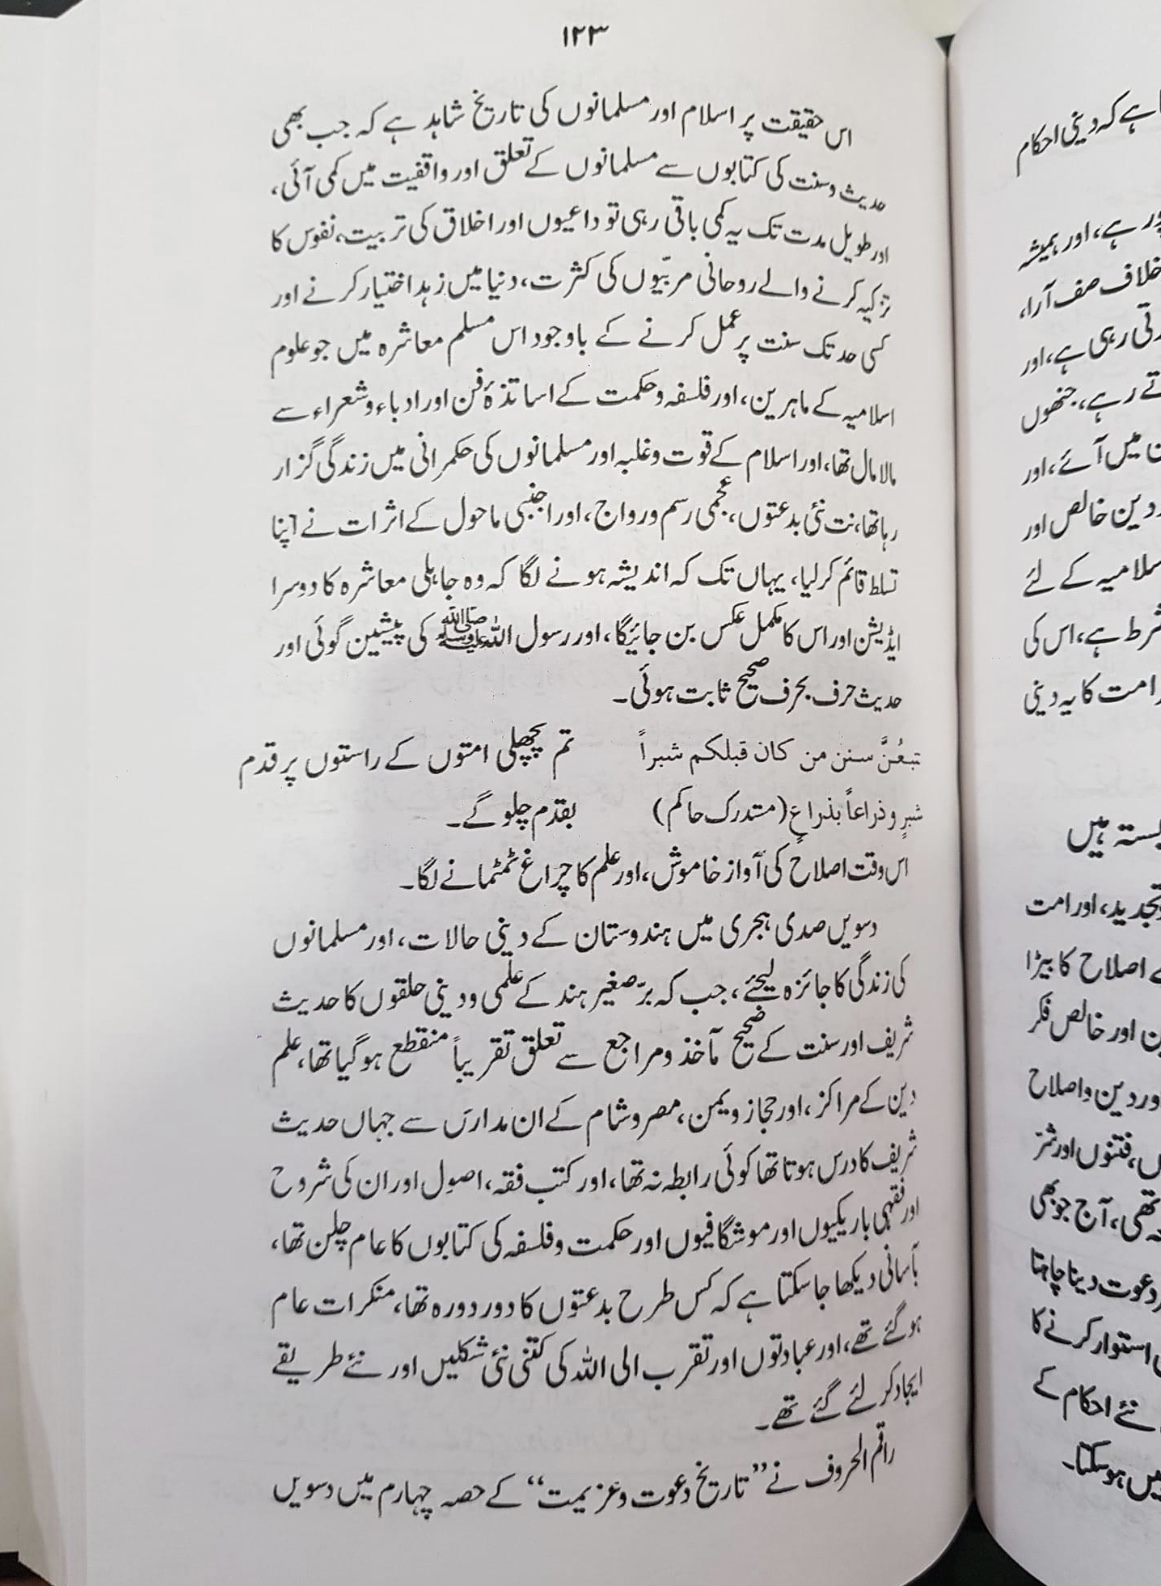 ۱۲۳
اس حقیقت پر اسلام اور مسلمانوں کی تاریخ شاہد ہے کہ جب بھی
حدیث و سنت کی کتابوں سے مسلمانوں کے تعلق اور واقفیت میں کمی آئی،
اور طویل مدت تک یہ کمی باقی رہی تو داعیوں اور اخلاق کی تربیت، نفوس کا
تزکیہ کرنے والے روحانی مربّیوں کی کثرت، دنیا میں زہد اختیار کرنے اور
کسی حد تک سنت پر عمل کرنے کے باوجود اس مسلم معاشرہ میں جو علوم
اسلامیہ کے ماہرین، اور فلسفہ و حکمت کے اساتذۂ فن اور ادباء و شعراء سے
مالا مال تھا، اور اسلام کے قوت و غلبہ اور مسلمانوں کی حکمرانی میں زندگی گزار
رہا تھا، نت نئی بدعتوں، عجمی رسم و رواج، اور اجنبی ماحول کے اثرات نے اپنا
تسلط قائم کر لیا، یہاں تک کہ اندیشہ ہونے لگا کہ وہ جاہلی معاشرہ کا دوسرا
ایڈیشن اور اس کا مکمل عکس بن جائیگا، اور رسول اللہ ﷺ کی پیشین گوئی اور
حدیث حرف بحرف صحیح ثابت ہوئی۔
تتبعُنَّ سنن من کان قبلکم شبراً تم پچھلی امتوں کے راستوں پر قدم
شبرٍ و ذراعاً بذراعٍ (مستدرک حاکم) بقدم چلو گے۔
اس وقت اصلاح کی آواز خاموش، اور علم کا چراغ ٹمٹمانے لگا۔
دسویں صدی ہجری میں ہندوستان کے دینی حالات، اور مسلمانوں
کی زندگی کا جائزہ لیجئے، جب کہ برّصغیر ہند کے علمی و دینی حلقوں کا حدیث
شریف اور سنت کے صحیح مآخذ و مراجع سے تعلق تقریباً منقطع ہو گیا تھا، علم
دین کے مراکز، اور حجاز و یمن، مصر و شام کے ان مدارس سے جہاں حدیث
شریف کا درس ہوتا تھا کوئی رابطہ نہ تھا، اور کتب فقہ، اصول اور ان کی شروح
اور فقہی باریکیوں اور موشگافیوں اور حکمت و فلسفہ کی کتابوں کا عام چلن تھا،
بآسانی دیکھا جا سکتا ہے کہ کس طرح بدعتوں کا دور دورہ تھا، منکرات عام
ہو گئے تھے، اور عبادتوں اور تقرب الی اللہ کی کتنی نئی شکلیں اور نئے طریقے
ایجاد کر لئے گئے تھے۔
راقم الحروف نے ”تاریخ دعوت و عزیمت“ کے حصہ چہارم میں دسویں
ہے کہ دینی احکام
ہے، اور ہمیشہ
خلاف صف آرا،
رہی ہے، اور
رہے، جنھوں
میں آئے، اور
دین خالص اور
کے لئے
شرط ہے، اس کی
امت کا یہ دینی
ہیں
تجدید، اور امت
اصلاح کا بیڑا
اور خالص فکر
اور دین و اصلاح
فتنوں اور شرّ
تھی، آج جو بھی
دعوت دینا چاہتا
استوار کرنے کا
نئے احکام کے
ہو سکتا۔